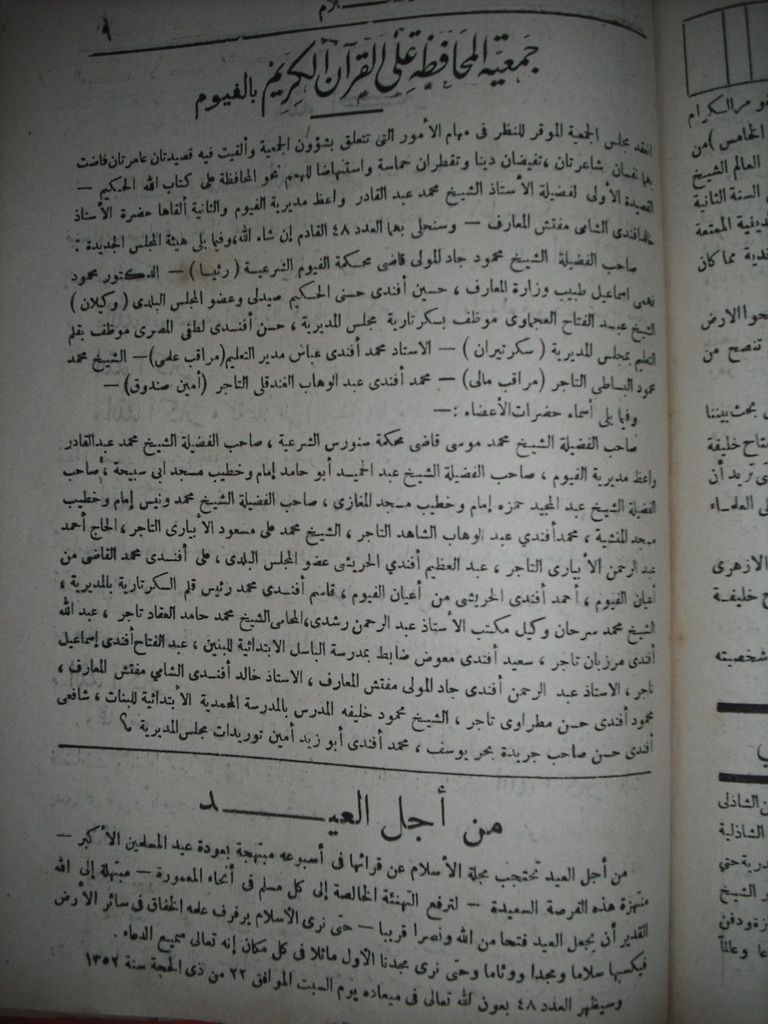 ٩
جمعية المحافظة على القرآن الكريم بالفيوم
انعقد مجلس الجمعية الموقر للنظر فى مهام الأمور التى تتعلق بشؤون الجمعية وألقيت فيه قصيدتان عامرتان فاضت
بهما نفسان شاعرتان ، تفيضان دينا وتقطران حماسة واستنهاضا للهمم نحو المحافظة على كتاب الله الحكيم —
القصيدة الأولى لفضيلة الأستاذ الشيخ محمد عبد القادر واعظ مديرية الفيوم والثانية ألقاها حضرة الأستاذ
خالد افندى الشامى مفتش المعارف — وسنحلى بهما العدد ٤٨ القادم إن شاء الله، وفيما يلى هيئة المجلس الجديدة :
صاحب الفضيلة الشيخ محمود جاد المولى قاضى محكمة الفيوم الشرعية ( رئيسا ) — الدكتور محمود
فهمى اسماعيل طبيب وزارة المعارف ، حسين أفندى حسنى الحكيم صيدلى وعضو المجلس البلدى ( وكيلان )
الشيخ عبد الفتاح العجماوى موظف بسكرتارية مجلس المديرية ، حسن أفندى لطفى المصرى موظف بقلم
التعليم بمجلس المديرية ( سكرتيران ) — الاستاذ محمد أفندى عباس مدير التعليم (مراقب علمى) — الشيخ محمد
محمود البساطى التاجر (مراقب مالى) — محمد أفندى عبد الوهاب الفندقلى التاجر (أمين صندوق) —
وفيما يلى أسماء حضرات الأعضاء :—
صاحب الفضيلة الشيخ محمد موسى قاضى محكمة سنورس الشرعية ، صاحب الفضيلة الشيخ محمد عبد القادر
واعظ مديرية الفيوم ، صاحب الفضيلة الشيخ عبد الحميد أبو حامد إمام وخطيب مسجد ابى سبيحة ، صاحب
الفضيلة الشيخ عبد المجيد حمزه إمام وخطيب مسجد المغازى ، صاحب الفضيلة الشيخ محمد ونيس إمام وخطيب
مسجد المنشية ، محمد أفندي عبد الوهاب الشاهد التاجر ، الشيخ محمد على مسعود الأبيارى التاجر ، الحاج أحمد
عبد الرحمن الأبيارى التاجر ، عبد العظيم أفندي الحريشى عضو المجلس البلدى ، على أفندى محمد القاضى من
أعيان الفيوم ، أحمد أفندى الحريشى من أعيان الفيوم ، قاسم أفندى محمد رئيس قلم السكرتارية بالمديرية ،
الشيخ محمد سرحان وكيل مكتب الأستاذ عبد الرحمن رشدى، المحامى الشيخ محمد حامد العقاد تاجر ، عبد الله
أفندى مرزبان تاجر ، سعيد أفندى معوض ضابط بمدرسة الباسل الابتدائية للبنين ، عبد الفتاح أفندى إسماعيل
تاجر ، الاستاذ عبد الرحمن أفندى جاد المولى مفتش المعارف ، الاستاذ خالد أفندى الشامي مفتش المعارف ،
محمود أفندى حسن مطراوى تاجر ، الشيخ محمود خليفه المدرس بالمدرسة المحمدية الأبتدائية للبنات ، شافعى
أفندى حسن صاحب جريدة بحر يوسف ، محمد أفندى أبو زيد أمين توريدات مجلس المديرية
من أجل العيد
من أجل العيد تحتجب مجلة الأسلام عن قرائها فى أسبوعه مبتهجة بعودة عيد المسلمين الأكبر —
منتهزة هذه الفرصة السعيدة — لترفع التهنئة الخالصة إلى كل مسلم فى أنحاء المعمورة — مبتهلة إلى الله
القدير أن يجعل العيد فتحا من الله ونصرا قريبا — حتى نرى الأسلام يرفرف علمه الخفاق فى سائر الأرض
فيكسبها سلاما ومجدا ووئاما وحتى نرى مجدنا الأول ماثلا فى كل مكان إنه تعالى سميع الدعاء .
وسيظهر العدد ٤٨ بعون الله تعالى فى ميعاده يوم السبت الموافق ٢٢ من ذى الحجة سنة ١٣٥٢